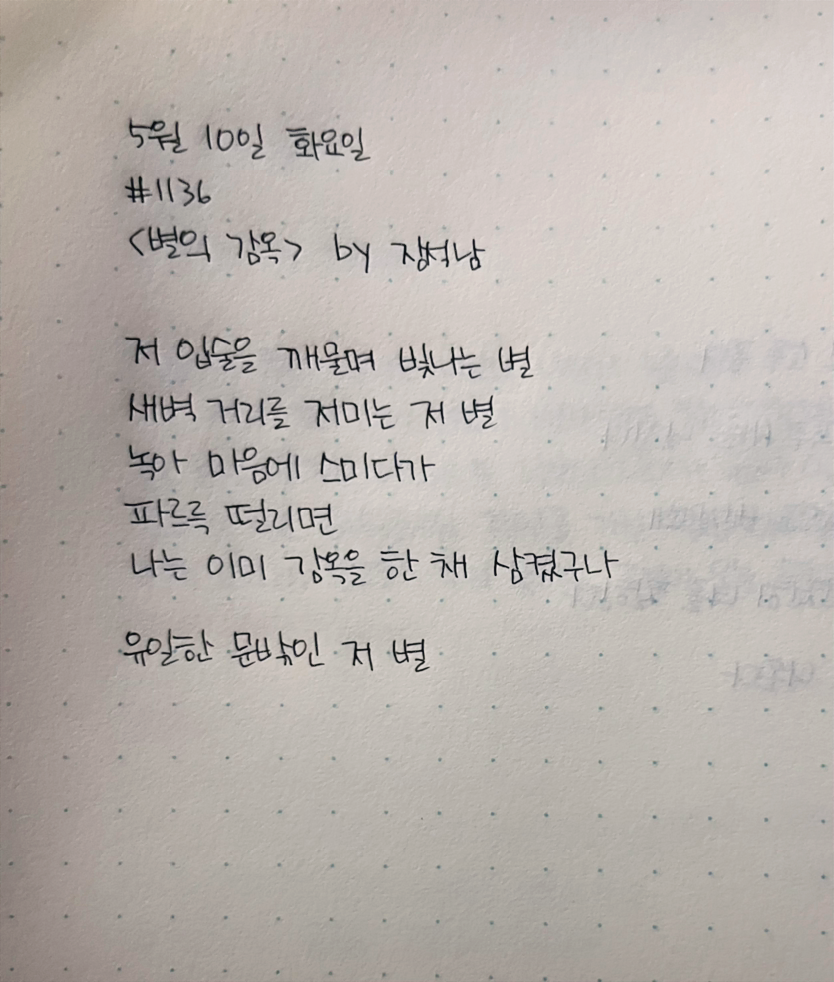 5월 10일 화요일
#1136
<별의 감옥> by 장석남
저 입술을 깨물며 빛나는 별
새벽 거리를 저미는 저 별
녹아 마음에 스미다가
파르륵 떨리면
나는 이미 감옥을 한 채 삼켰구나
유일한 문밖인 저 별